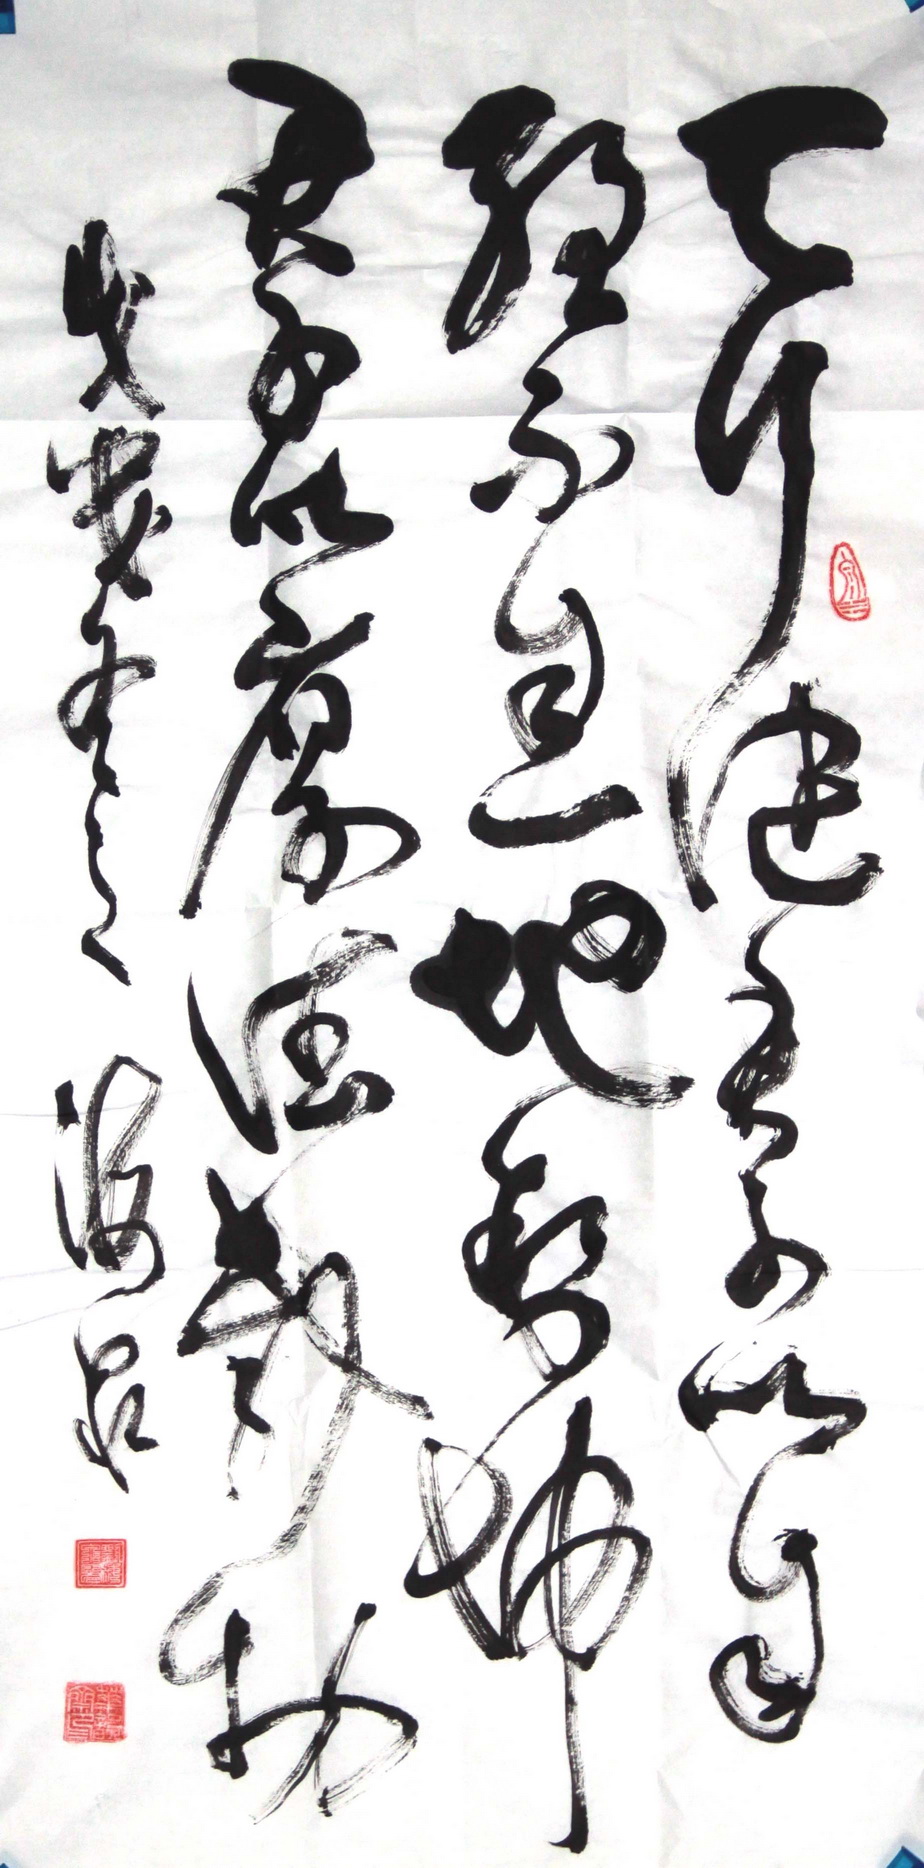 天行健君子以自
强不息地势坤
君子以厚德载物
戊戌冬